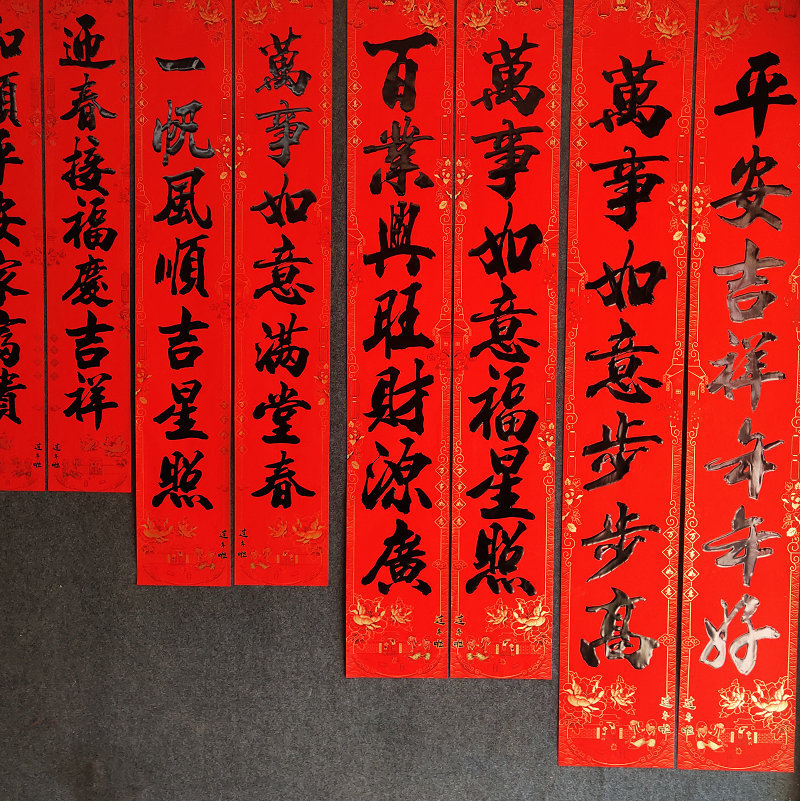 平安吉祥年年好
萬事如意步步高
萬事如意福星照
百業興旺財源廣
萬事如意满堂春
一帆風順吉星照
迎春接福慶吉祥
和順平安家富貴